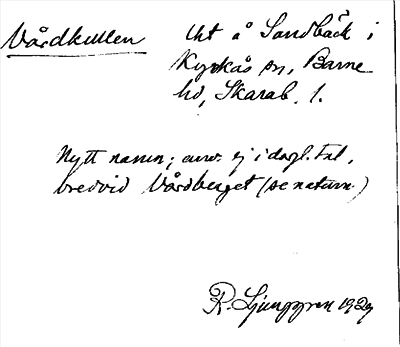 Vårdkullen
Uht å Sandbäck i
Kyrkås sn, Barne
hd, Skarab. l.
Nytt namn; anv. ej i dagl. tal,
bredvid Vårdberget (se naturn.)
R. Ljunggren 1929